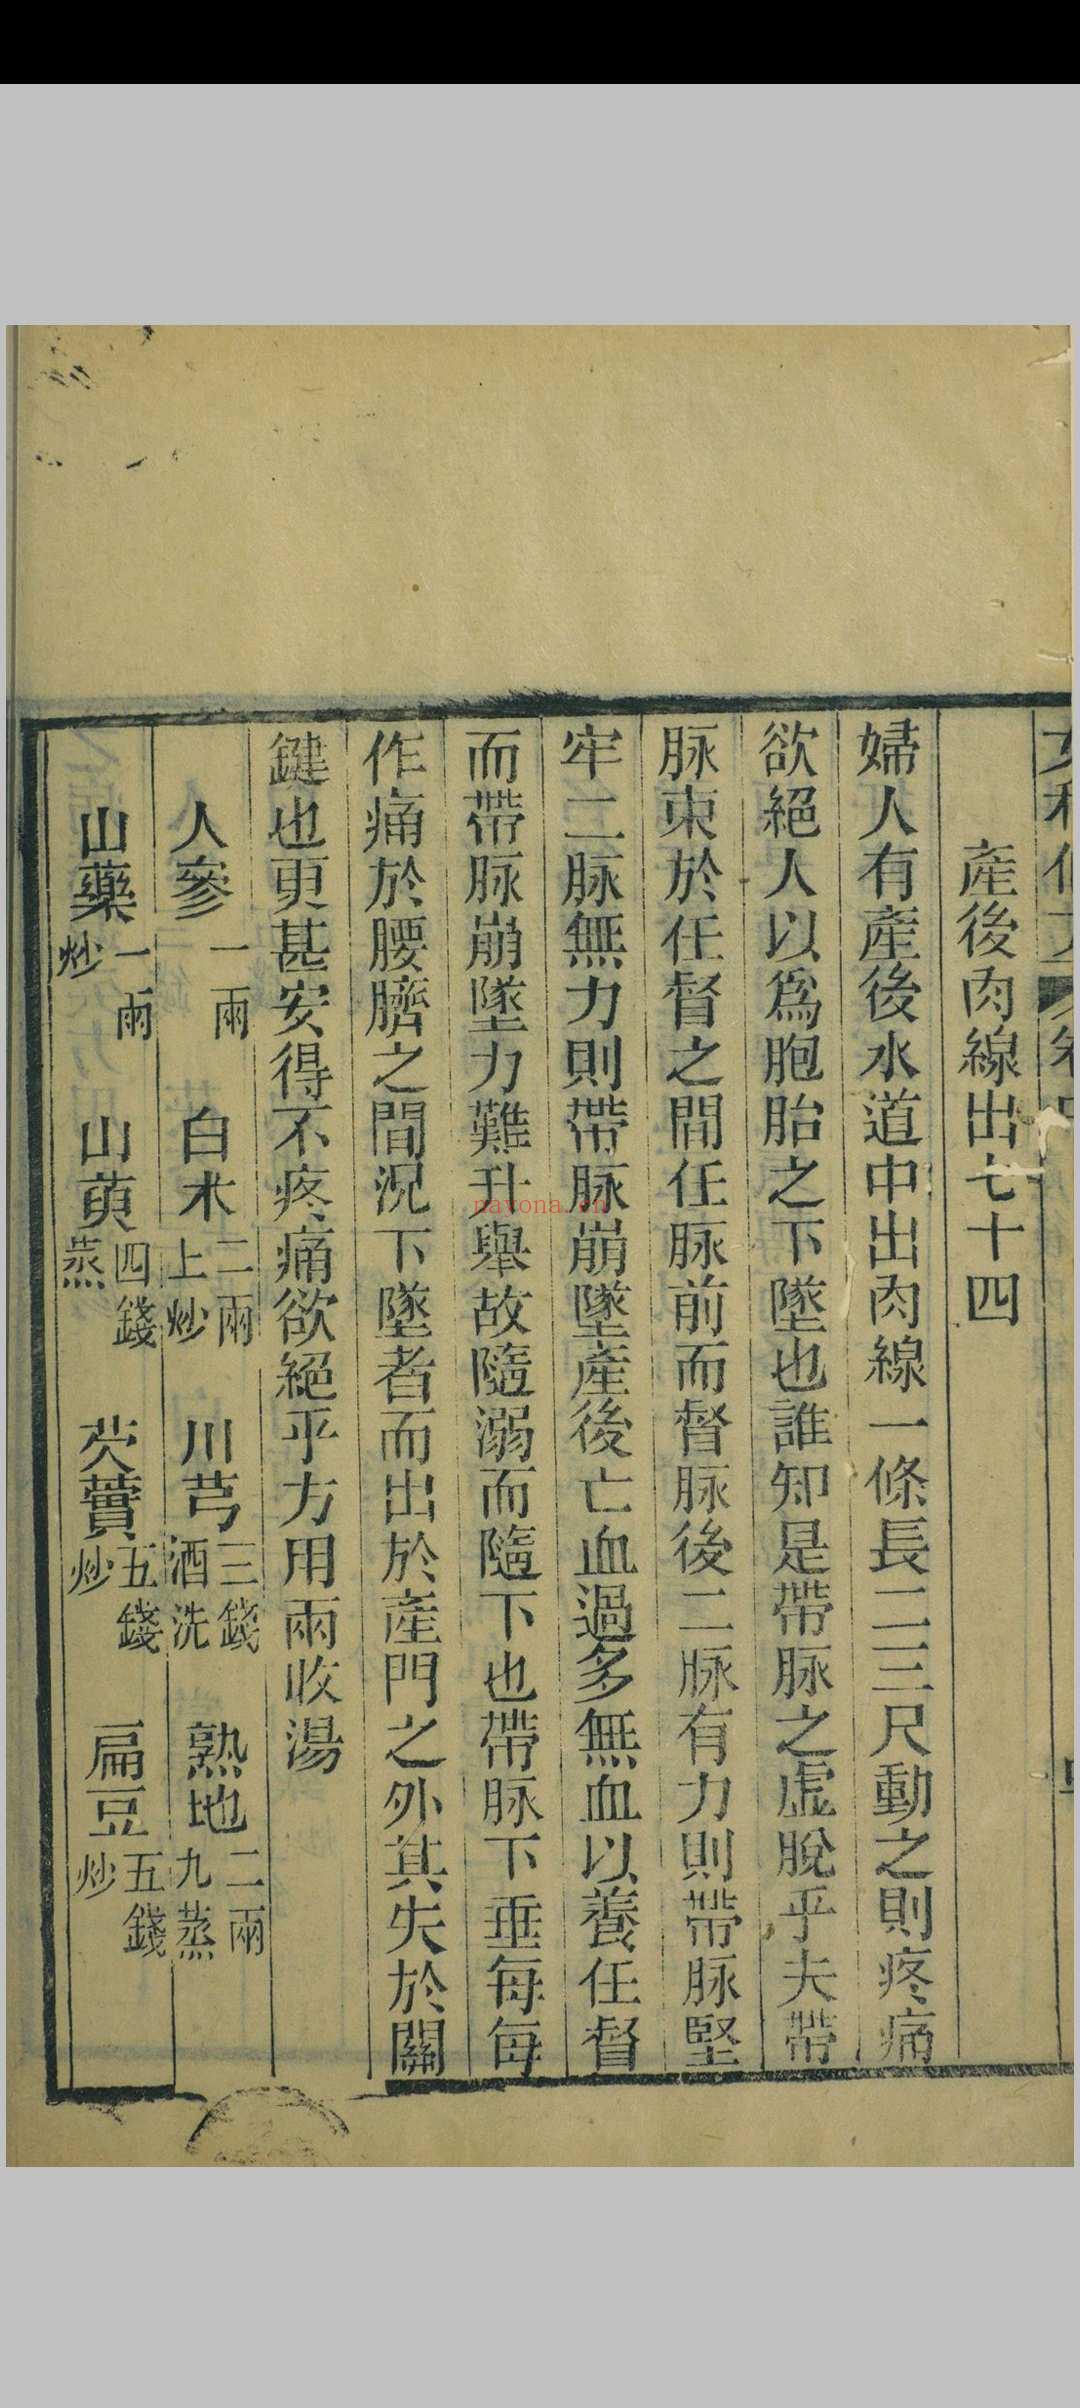 產後肉線出七十四
婦人有產後水道中出肉線一條長二三尺動之則疼痛
欲絕人以爲胞胎之下墜也誰知是帶脉之虛脫乎夫帶
脉束於任督之間任脉前而督脉後二脉有力則帶脉堅
牢二脉無力則帶脉崩墜產後亡血過多無血以養任督
而帶脉崩墜力難升舉故隨溺而隨下也帶脉下垂每每
作痛於腰臍之間況下墜者而出於產門之外其失於關
鍵也更甚安得不疼痛欲絕乎方用兩收湯
人參一兩 白朮二兩上炒 川芎三錢酒洗 熟地二兩九蒸
山藥一兩炒 山萸四錢蒸 芡實五錢炒 扁豆五錢炒
nayona.cn